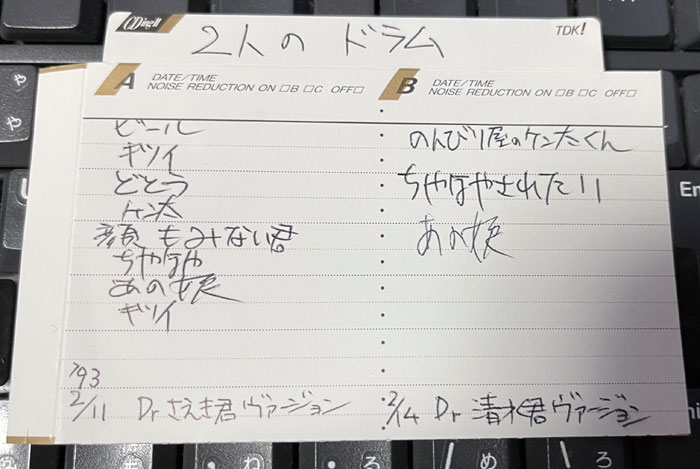 CDing II
2人の ドラム
TDK!
A
DATE/TIME
NOISE REDUCTION ON □B □C OFF□
ビール
キツイ
どとう
ケン太
顔もみない君
ちやほや
あの娘
キツイ
'93
2/11 Dr さえき君 ヴァージョン
B
DATE/TIME
NOISE REDUCTION ON □B □C OFF□
のんびり屋のケン太くん
ちやほやされた
あの娘
2/14 Dr 清水君 ヴァージョン
や
ゃ
U
En
ね
ろ
め
ろ